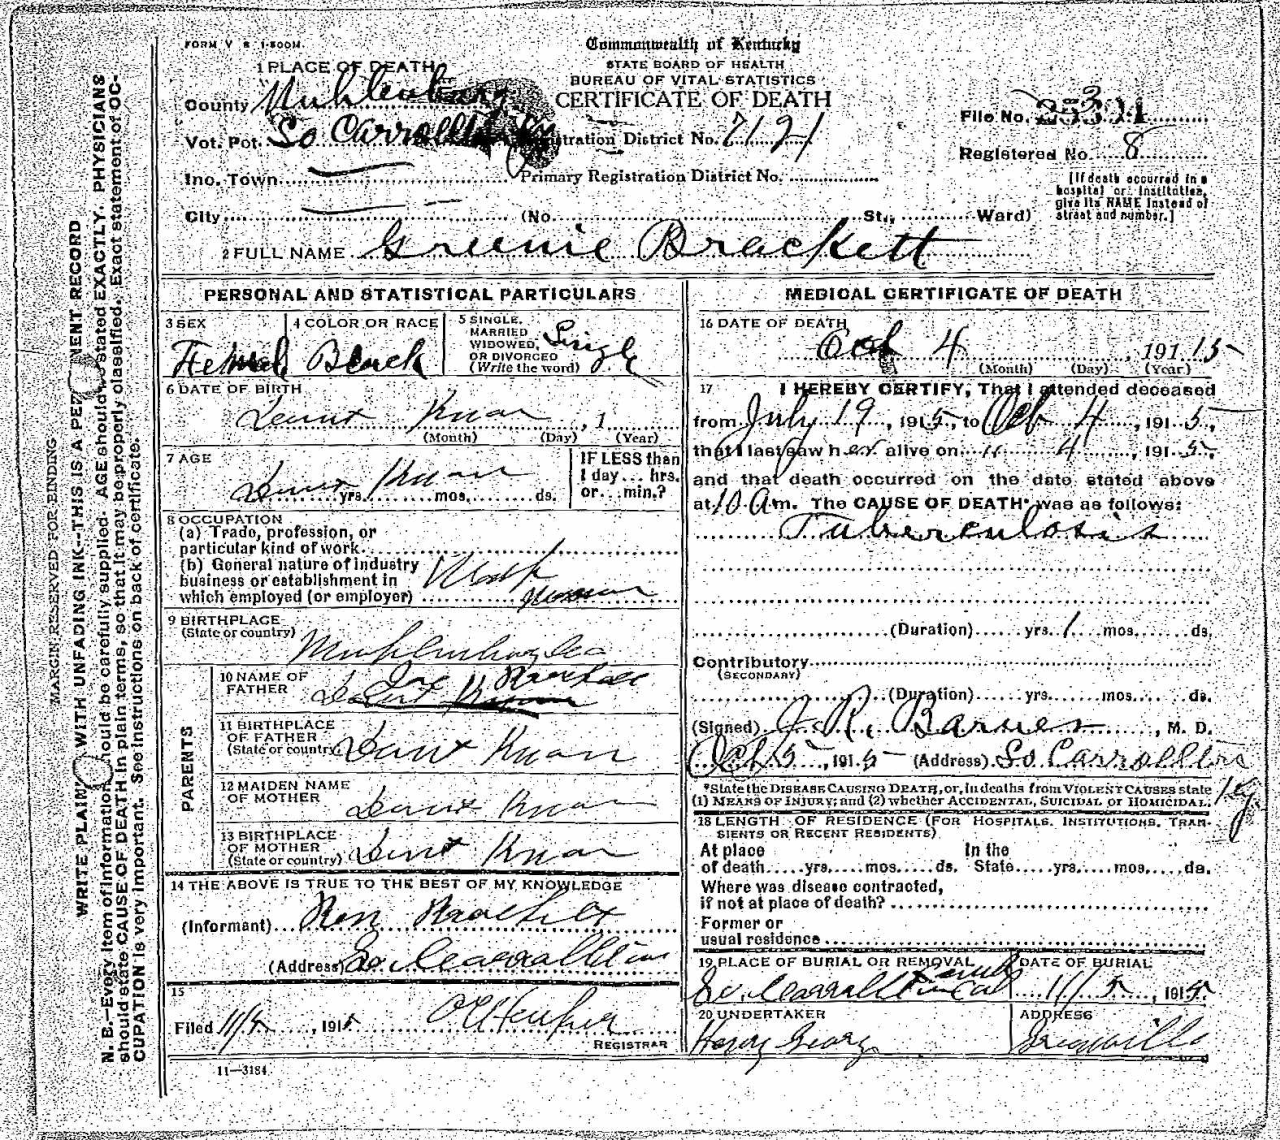 FORM V S 1-500M.
Commonwealth of Kentucky
STATE BOARD OF HEALTH
BUREAU OF VITAL STATISTICS
CERTIFICATE OF DEATH
1 PLACE OF DEATH
County Muhlenburg
Vot. Pct. So Carrollton Registration District No. 7121
Ino. Town Primary Registration District No.
City (No. St., Ward)
File No.
Registered No. 8
[If death occurred in a
hospital or institution,
give its NAME instead of
street and number.]
2 FULL NAME Greenie Brackett
PERSONAL AND STATISTICAL PARTICULARS
3 SEX
Femal
4 COLOR OR RACE
Black
5 SINGLE,
MARRIED
WIDOWED,
OR DIVORCED
(Write the word)
Single
6 DATE OF BIRTH
Dont Know , 1
(Month) (Day) (Year)
7 AGE
Dont Know
yrs. mos. ds.
IF LESS than
1 day... hrs.
or... min.?
8 OCCUPATION
(a) Trade, profession, or
particular kind of work
(b) General nature of industry
business or establishment in
which employed (or employer)
9 BIRTHPLACE
(State or country)
Muhlenburg Co
PARENTS
10 NAME OF
FATHER
11 BIRTHPLACE
OF FATHER
(State or country) Dont Know
12 MAIDEN NAME
OF MOTHER
Dont Know
13 BIRTHPLACE
OF MOTHER
(State or country) Dont Know
14 THE ABOVE IS TRUE TO THE BEST OF MY KNOWLEDGE
(Informant)
(Address) So Carrollton
15
Filed 11/5, 1915
REGISTRAR
11—3184
MEDICAL CERTIFICATE OF DEATH
16 DATE OF DEATH
Oct 4 , 191 15
(Month) (Day) (Year)
17 I HEREBY CERTIFY, That I attended deceased
from July 19, 1915, to Oct 4, 1915,
that I last saw her alive on " 4, 1915,
and that death occurred on the date stated above
at 10 a m. The CAUSE OF DEATH* was as follows:
Tuberculosis
(Duration) yrs. 1 mos. ds.
Contributory
(SECONDARY)
(Duration) yrs. mos. ds.
(Signed) J. R. Barnes, M. D.
Oct 5, 1915 (Address) So Carrollton
Ky.
*State the DISEASE CAUSING DEATH, or, in deaths from VIOLENT CAUSES state
(1) MEANS OF INJURY; and (2) whether ACCIDENTAL, SUICIDAL or HOMICIDAL.
18 LENGTH OF RESIDENCE (FOR HOSPITALS, INSTITUTIONS, TRAN-
SIENTS OR RECENT RESIDENTS)
At place In the
of death yrs. mos. ds. State yrs. mos. ds.
Where was disease contracted,
if not at place of death?
Former or
usual residence
19 PLACE OF BURIAL OR REMOVAL
So. Carrollton
DATE OF BURIAL
11/5, 1915
20 UNDERTAKER
Henry Geary
ADDRESS
Greenville
MARGIN RESERVED FOR BINDING
WRITE PLAINLY WITH UNFADING INK--THIS IS A PERMANENT RECORD
N. B.—Every item of information should be carefully supplied. AGE should be stated EXACTLY. PHYSICIANS
should state CAUSE OF DEATH in plain terms, so that it may be properly classified. Exact statement of OC-
CUPATION is very important. See instructions on back of certificate.